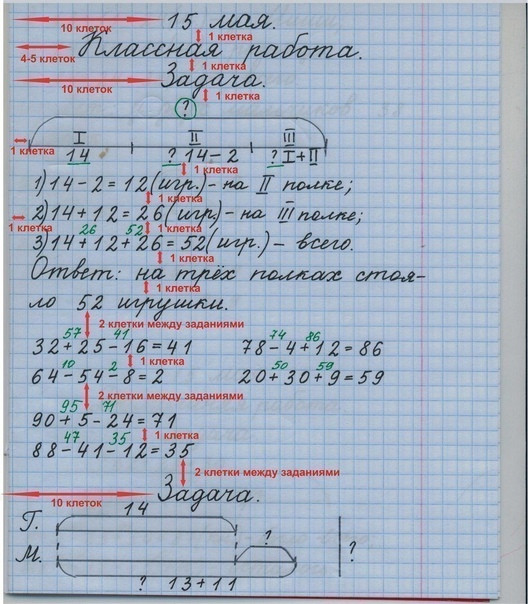 10 клеток 15 мая.
1 клетка
4-5 клеток Классная работа.
1 клетка
10 клеток Задача.
1 клетка
?
I II III
1 клетка 14 ? 14-2 ? I+II
1 клетка
1) 14-2=12(игр.)-на II полке;
1 клетка
2) 14+12=26(игр.)-на III полке;
1 клетка 26 52 1 клетка
3) 14+12+26=52(игр.)-всего.
1 клетка
Ответ: на трёх полках стоя-
1 клетка
ло 52 игрушки.
2 клетки между заданиями
57 41 74 86
32+25-16=41 78-4+12=86
1 клетка
10 2 50 59
64-54-8=2 20+30+9=59
2 клетки между заданиями
95 71
90+5-24=71
1 клетка
47 35
88-41-12=35
2 клетки между заданиями
10 клеток Задача.
14
Г.
? ?
М.
? 13+11